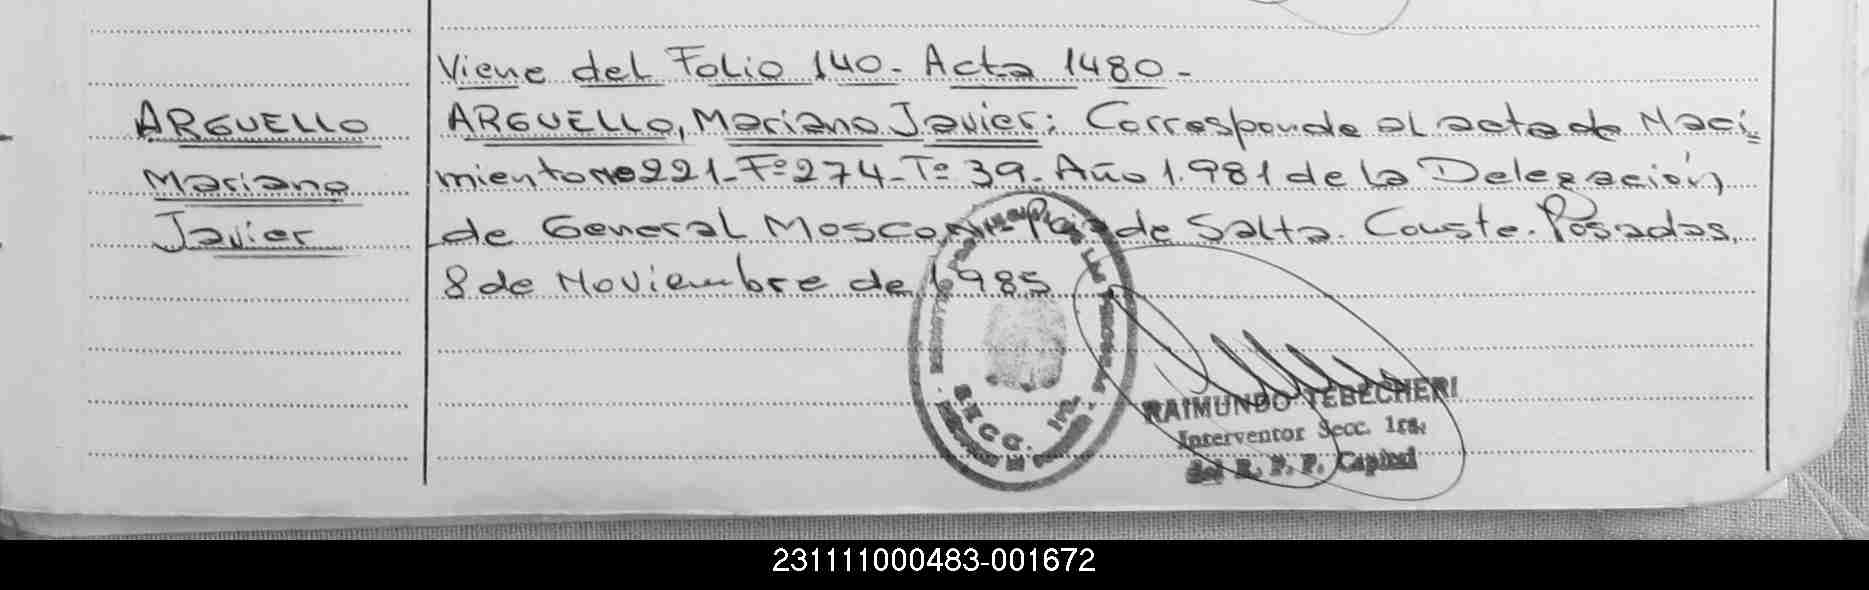 Viene del Folio 140.- Acta 1480.-
ARGUELLO
Mariano
Javier
ARGUELLO, Mariano Javier: Corresponde al acta de Naci=
miento Nº 221- Fº 274- Tº 39- Año 1.981 de la Delegación
de General Mosconi- Pcia de Salta. Conste. Posadas,
8 de Noviembre de 1985
RAIMUNDO TEBECHERI
Interventor Secc. 1ra.
del R. P. P. Capital
231111000483-001672